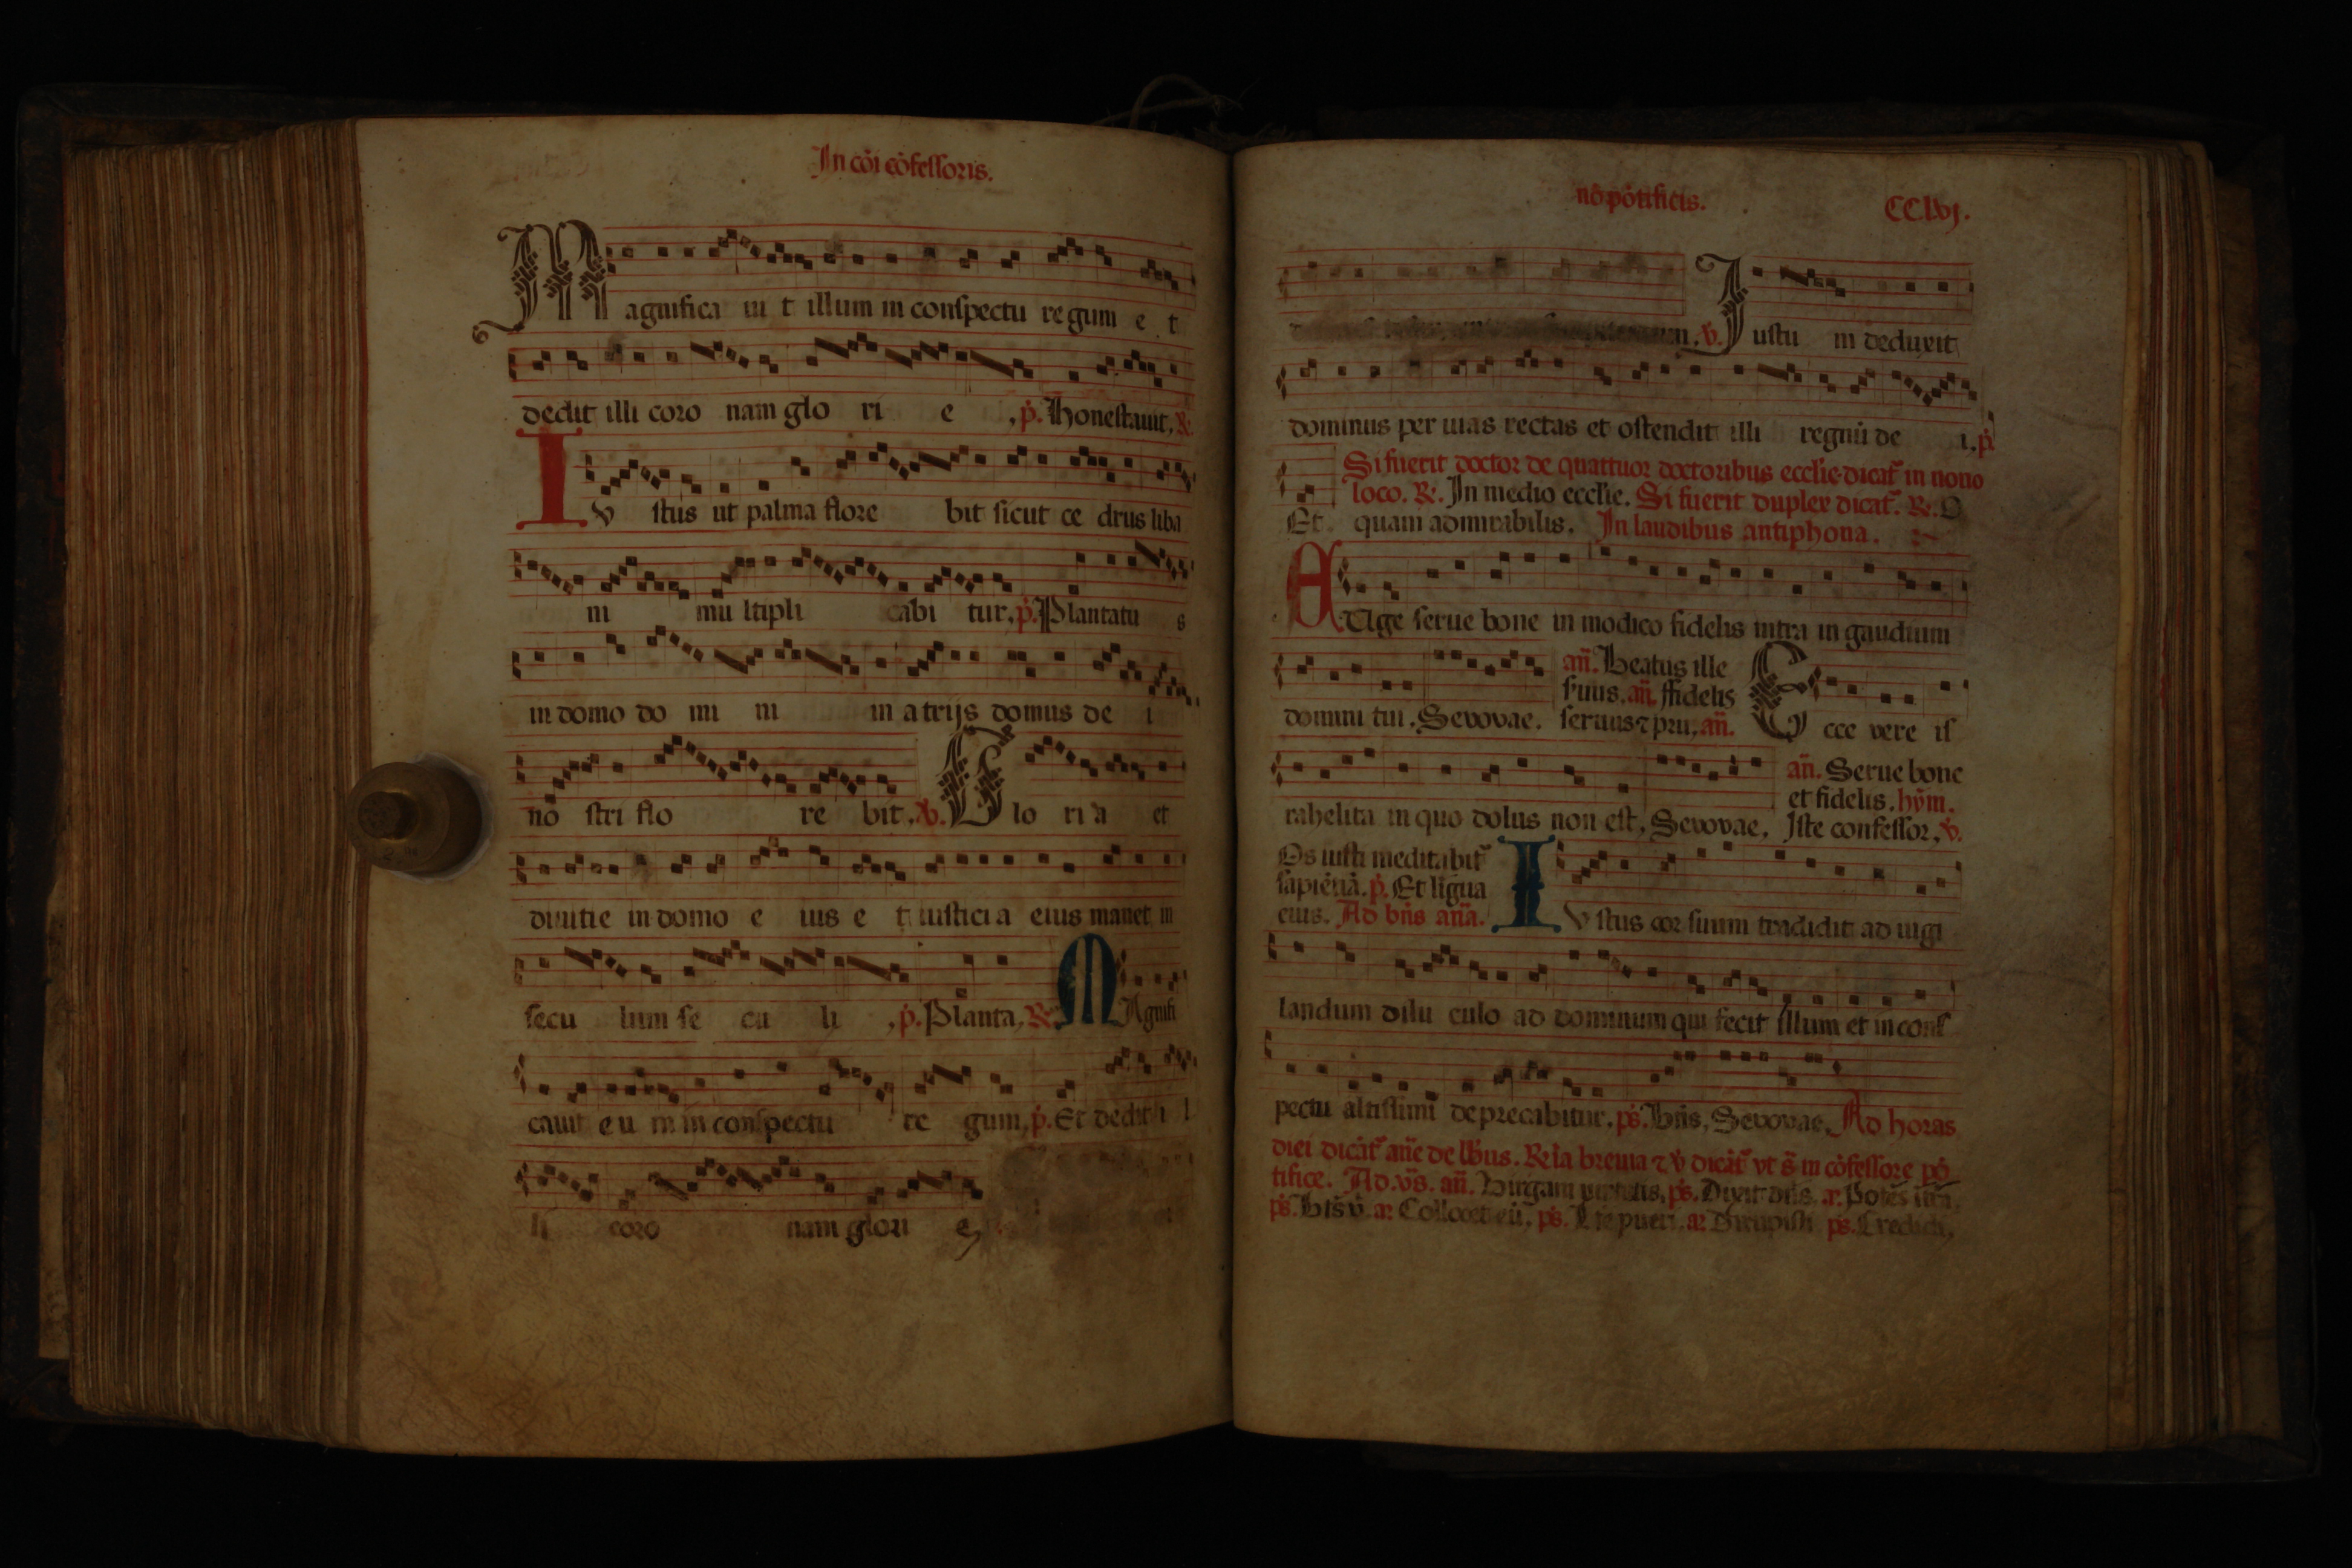 In cōi cōfessoris.
Magnifica ui t illum in conspectu regum e t
dedit illi coro nam glo ri e , p. Honestauit, R.
Iv stus ut palma flore bit sicut ce drus liba
ni mu ltipli cabi tur, p. Plantatu s
in domo do mi ni in atrijs domus de i
no stri flo re bit, V. Glo ri a et
diuitie in domo e ius e t iusticia eius manet in
secu lum se cu li , p. Planta, R. MAgnifi
cauit eu m in conspectu re gum, p. Et dedit i l
li coro nam glori e,
nō pōtificis. CCLvj.
V. Iustu m deduxit
dominus per uias rectas et ostendit illi regnū de i. p.
Si fuerit doctor de quattuor doctoribus ecclie dicat̄ in nono
loco. R. In medio ecclie. Si fuerit duplex dicat̄. R. O
Et quam admirabilis. In laudibus antiphona.
EVge serue bone in modico fidelis intra in gaudium
an̄. Beatus ille
suus. an̄. ffidelis
domini tui. Sevovae. seruus ⁊ pru, an̄. Ecce vere is
an̄. Serue bone
et fidelis. hȳm.
rahelita in quo dolus non est, Sevovae, Iste confessor, V.
Os iusti meditabit̄
sapiētiā. p. Et līgua
eius. Ad bn̄s an̄a. Iv stus cor suum tradidit ad uigi
landum dilu culo ad dominum qui fecit illum et in cons
pectu altissimi deprecabitur. ps. Bn̄s, Sevovae, Ad horas
diei dicāt̄ an̄e de lbus. R̄ia breuia ⁊ v dicāt̄ vt s̄ in cōfessore pō
tifice. Ad vs̄. an̄. Virgam uirtutis, ps. Dixit dn̄s. a. Potēs
ps. Bt̄s v. a. Collocet eū, ps. pueri. a. Dirupisti ps. Credidi,